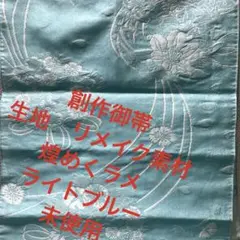 創作御帯
生地 リメイク素材
煌めくラメ
ライトブルー
未使用